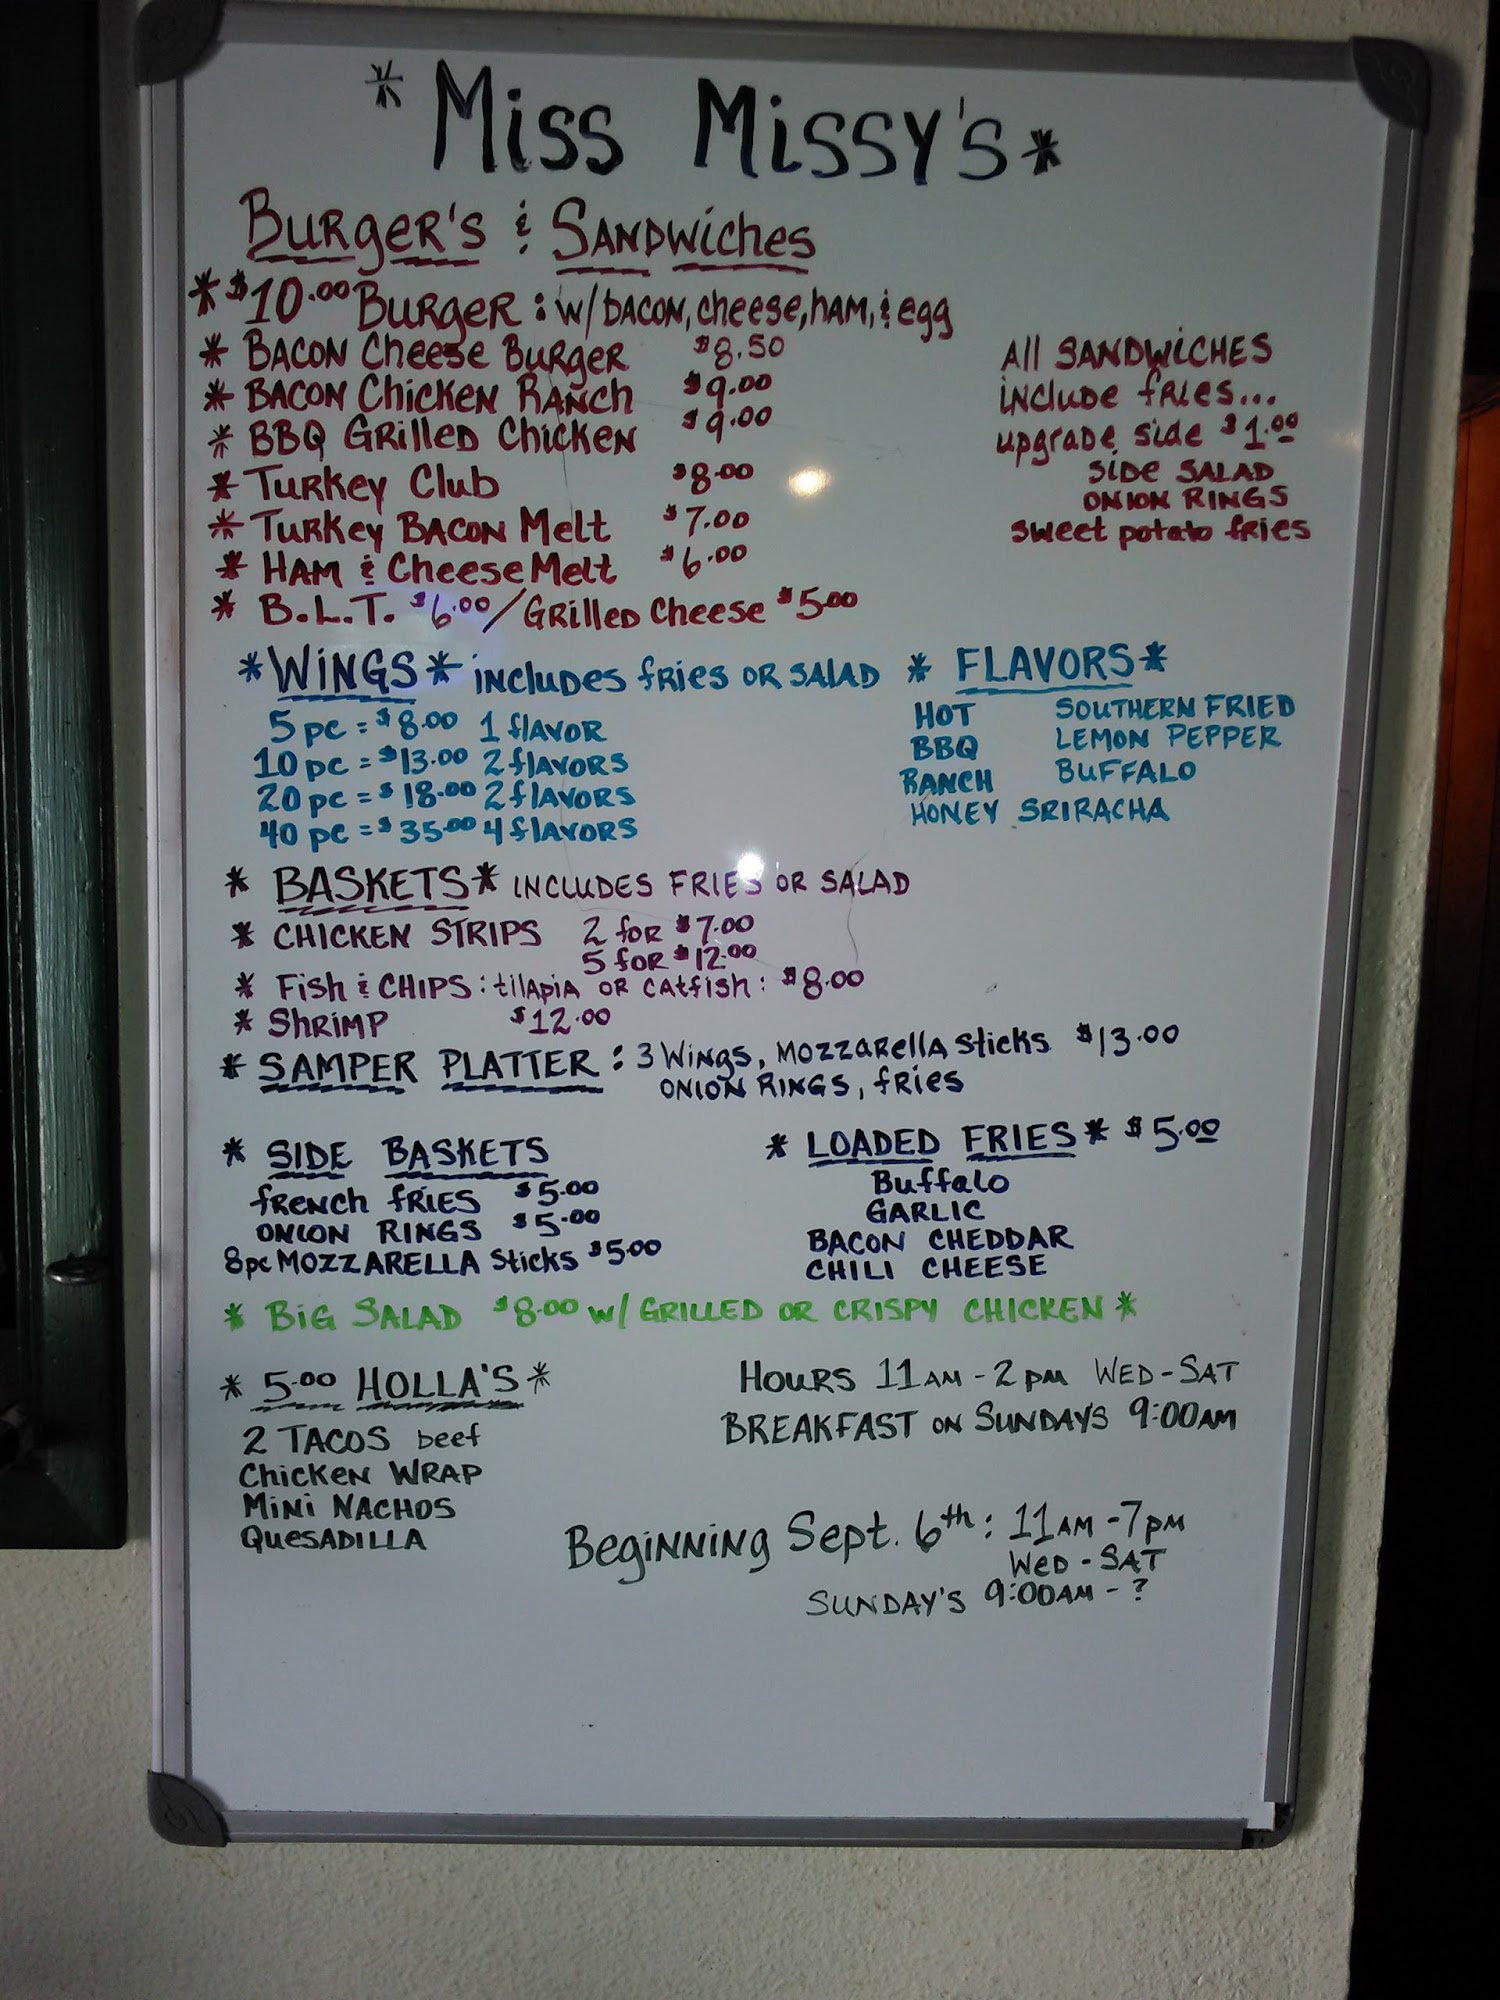 * Miss Missy's *
Burger's & Sandwiches
* $10.00 Burger : w/ bacon, cheese, ham, & egg
* Bacon Cheese Burger $8.50
* Bacon Chicken Ranch $9.00
* BBQ Grilled Chicken $9.00
* Turkey Club $8.00
* Turkey Bacon Melt $7.00
* Ham & Cheese Melt $6.00
* B.L.T. $6.00 / Grilled Cheese $5.00
All SANDWICHES
include fries...
upgrade side $1.00
SIDE SALAD
ONION RINGS
sweet potato fries
* WINGS * includes fries or salad
5 pc = $8.00 1 flavor
10 pc = $13.00 2 flavors
20 pc = $18.00 2 flavors
40 pc = $35.00 4 flavors
* FLAVORS *
HOT SOUTHERN FRIED
BBQ LEMON PEPPER
RANCH BUFFALO
HONEY SRIRACHA
* BASKETS * INCLUDES FRIES OR SALAD
* CHICKEN STRIPS 2 for $7.00
5 for $12.00
* Fish & CHIPS : tilapia or catfish : $8.00
* Shrimp $12.00
* SAMPER PLATTER : 3 Wings, Mozzarella Sticks $13.00
ONION RINGS, fries
* SIDE BASKETS
french fries $5.00
ONION RINGS $5.00
8pc MOZZARELLA Sticks $5.00
* LOADED FRIES * $5.00
Buffalo
GARLIC
BACON CHEDDAR
CHILI CHEESE
* BIG SALAD $8.00 w/ GRILLED OR CRISPY CHICKEN *
* 5.00 HOLLA'S *
2 TACOS beef
Chicken WRAP
Mini NACHOS
QUESADILLA
HOURS 11AM - 2pm WED - SAT
BREAKFAST on SUNDAYS 9:00AM
Beginning Sept. 6th : 11AM - 7pm
WED - SAT
SUNDAY'S 9:00AM - ?